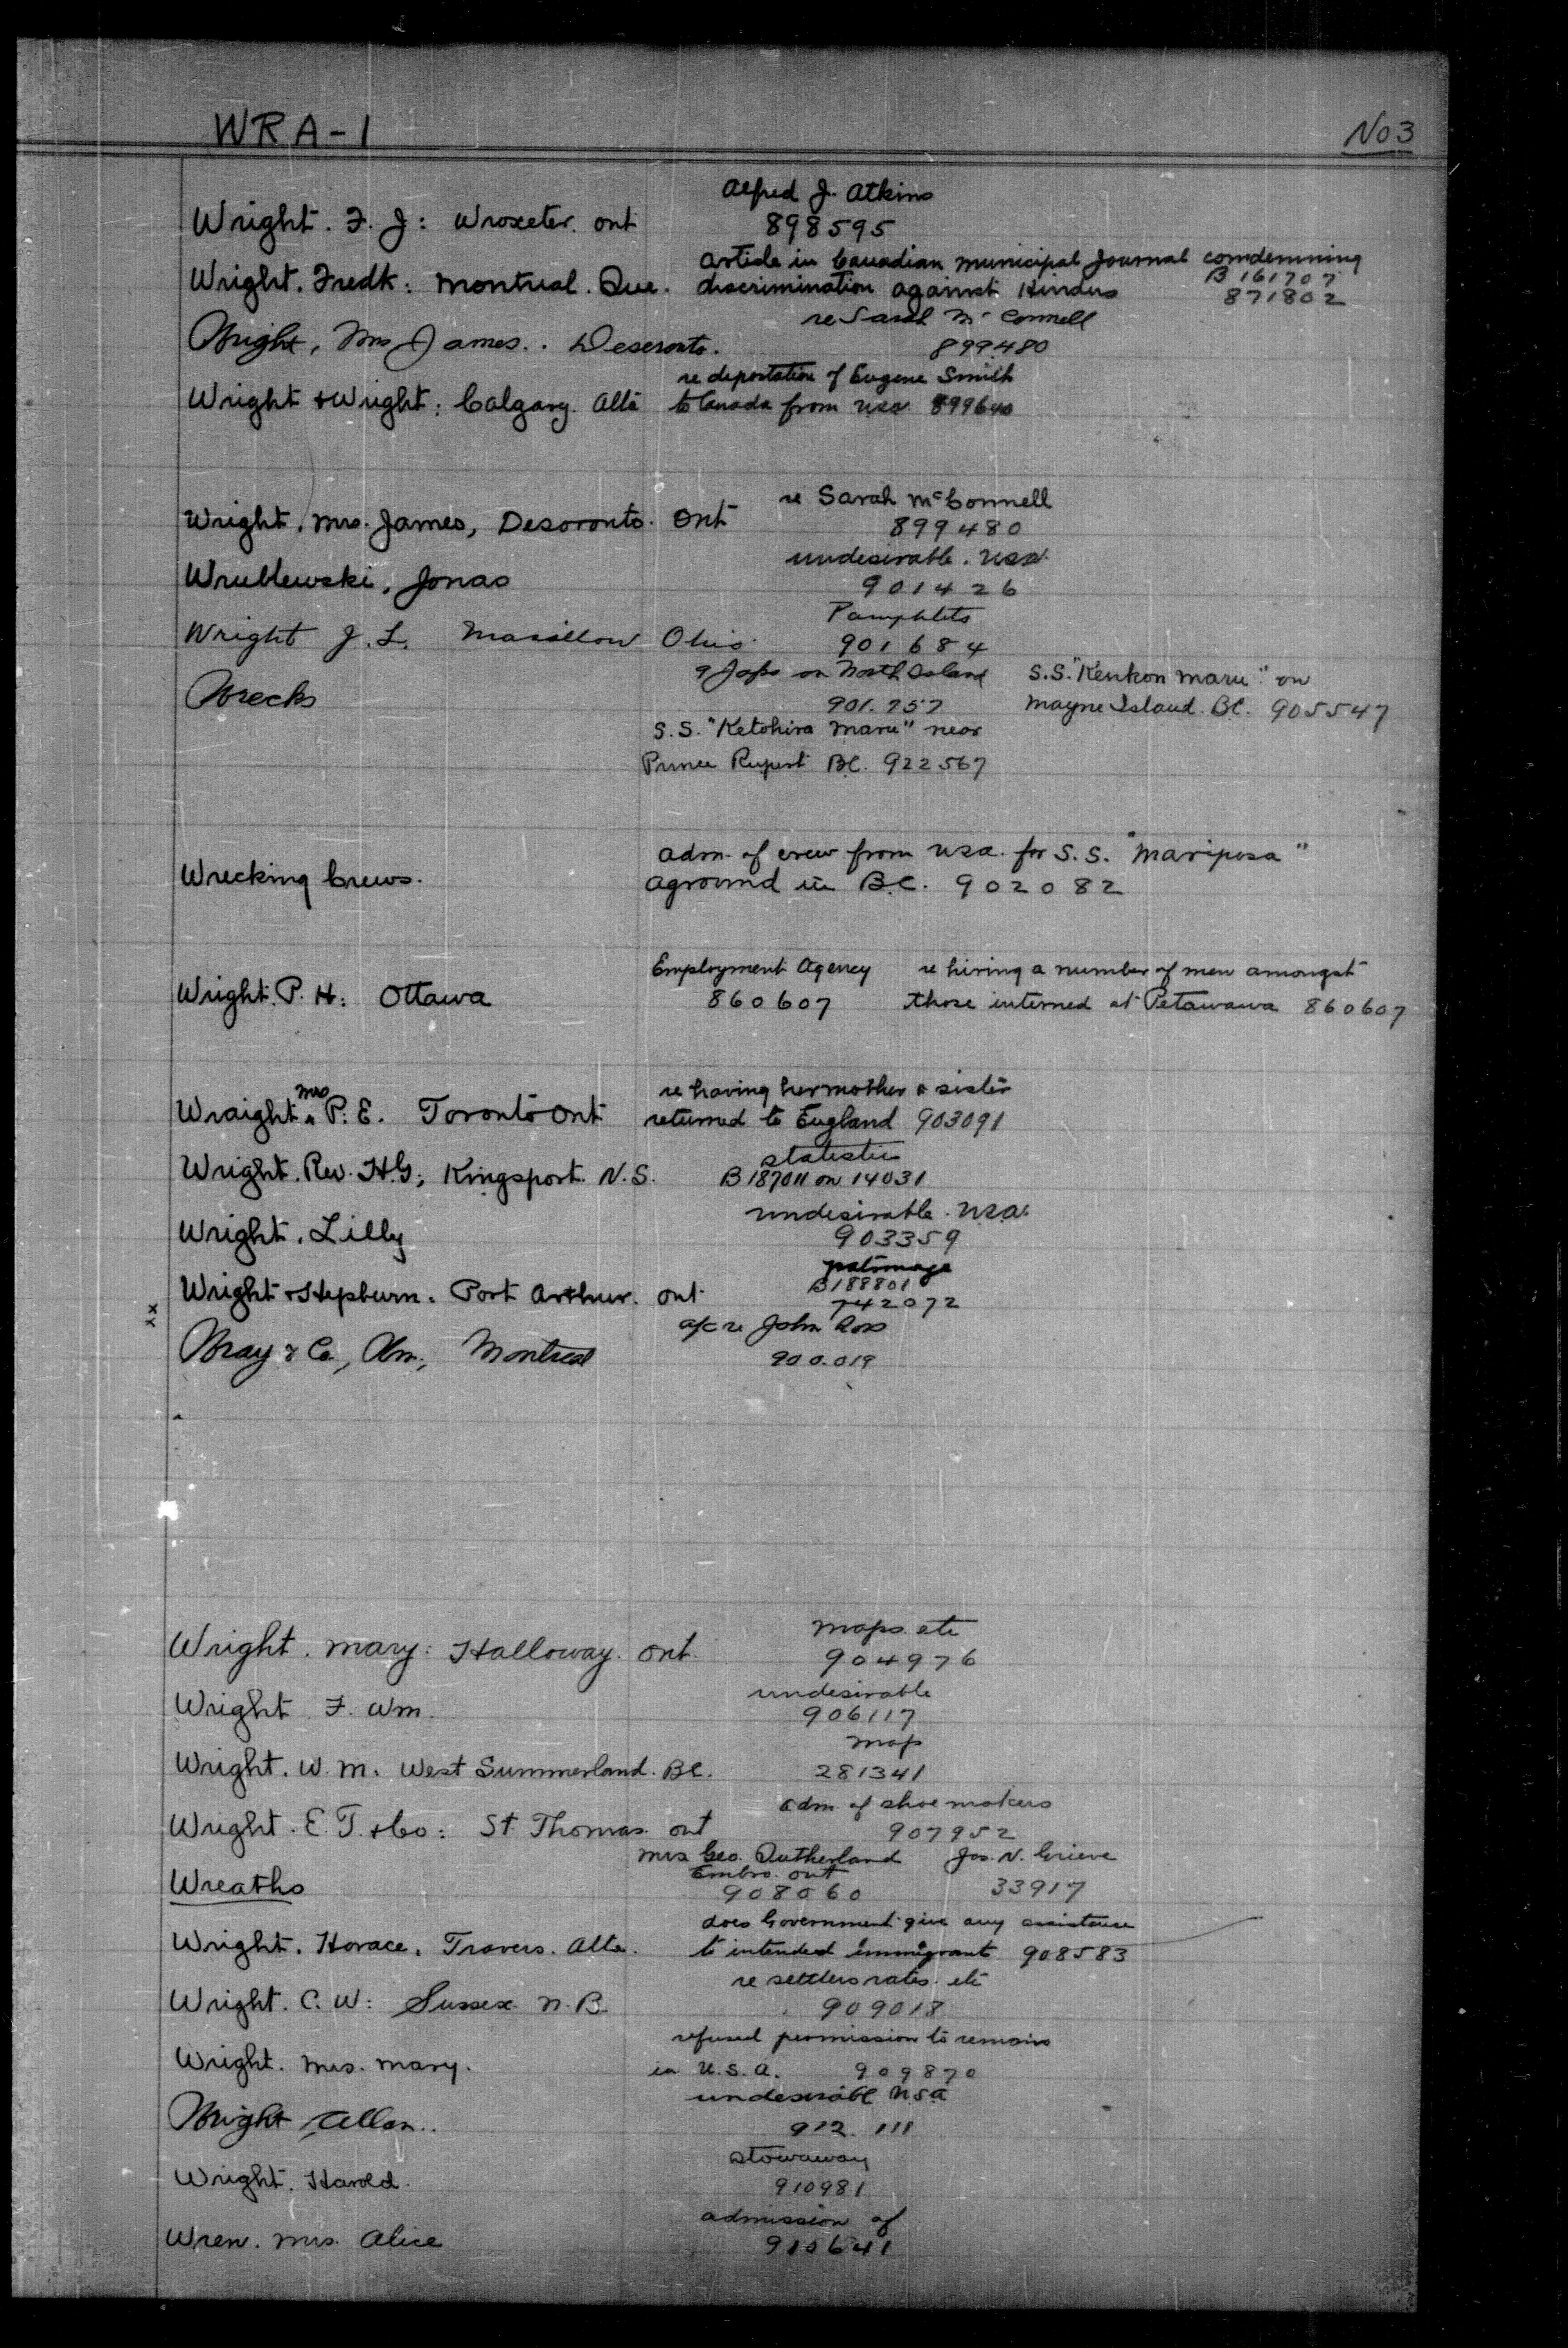 WRA-1
No 3
Alfred J. Atkins
Wright. F. J: Wroxeter. Ont
898595
Article in Canadian Municipal Journal comdemning
B 161707
Wright. Fredk: Montreal. Que. discrimination against Hindus
871802
re Sarah McConnell
Wright, Mrs James.. Deseronto.
899480
re deportation of Eugene Smith
Wright & Wright: Calgary. Alta to Canada from USA. 899640
re Sarah McConnell
Wright, Mrs. James, Desoronto. Ont
899480
undesirable. USA.
Wrublewski, Jonas
901426
Pamphlets
Wright J. L. Masillon Ohio
901684
9 Japs on North Island S.S. "Kenkon Maru" on
Wrecks
901.757 Mayne Island. B.C. 905547
S.S. "Ketohira Maru" near
Prince Rupert B.C. 922567
adm. of crew from USA. for S.S. "Mariposa"
Wrecking Crews.
aground in B.C. 902082
Employment Agency re hiring a number of men amongst
Wright. P. H: Ottawa
860607 those interned at Petawawa 860607
re having her mother & sister
Wraight Mrs P. E. Toronto Ont returned to England 903091
statistics
Wright. Rev. H.G; Kingsport. N.S. B 187011 on 14031
undesirable. USA.
Wright. Lilly
903359
patronage
B188801
Wright & Hepburn: Port Arthur. Ont
xx
742072
a/c re John Ross
Wray & Co, Wm; Montreal
900.019
maps. etc
Wright. Mary: Halloway. Ont.
904976
undesirable
Wright F. Wm.
906117
map
Wright. W. M. West Summerland. B.C.
281341
adm. of shoe makers
Wright. E. T. & Co: St. Thomas. Ont
907952
Mrs Geo. Sutherland Jas. N. Grieve
Embro. Ont
Wreaths
908060 33917
does Government give any assistance
Wright. Horace. Travers. Alta. to intended immigrant 908583
re settlers rates. etc
Wright. C. W: Sussex. N.B.
909018
refused permission to remain
Wright. Mrs. Mary.
in U.S.A. 909870
undesirable USA
Wright, Allan..
912.111
stowaway
Wright. Harold.
910981
admission of
Wren. Mrs. Alice
910641